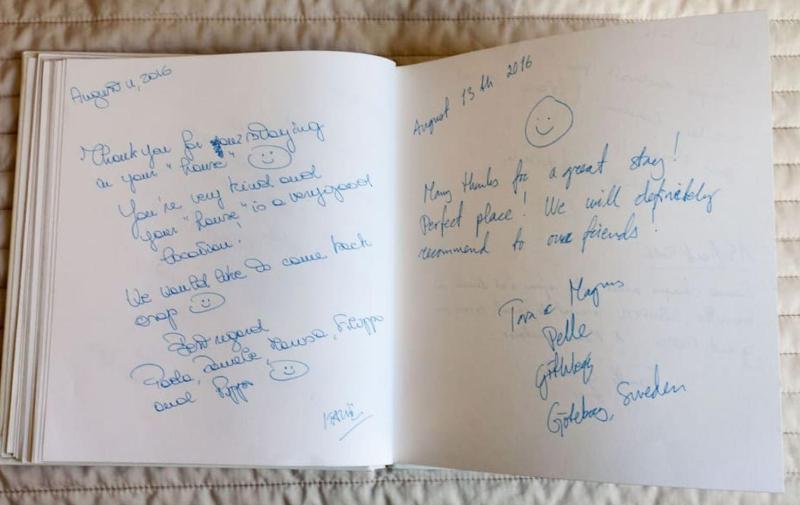 August 11, 2016
Thank you for your staying
in your "house"
You're very kind and
your "house" is a very good
location!
We would like to come back
asap
Best regard
Paola, Daniele, Filippo
and Pippo
August 13th 2016
Many thanks for a great stay!
Perfect place! We will definitely
recommend to our friends!
Tora & Magnus
Pelle
Göteborg, Sweden